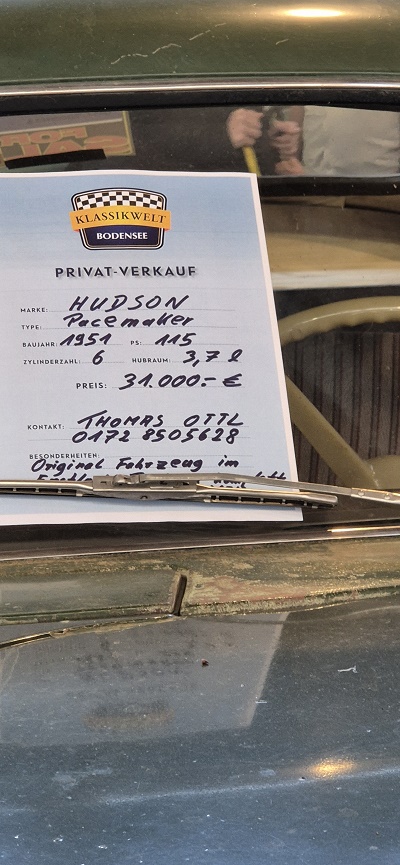 FOR
SALE
KLASSIKWELT
BODENSEE
PRIVAT-VERKAUF
MARKE: HUDSON
TYPE: Pacemaker
BAUJAHR: 1951 PS: 115
ZYLINDERZAHL: 6 HUBRAUM: 3,7 l
PREIS: 31.000.- €
KONTAKT: THOMAS OTTL
0172 8505628
BESONDERHEITEN:
Original Fahrzeug im